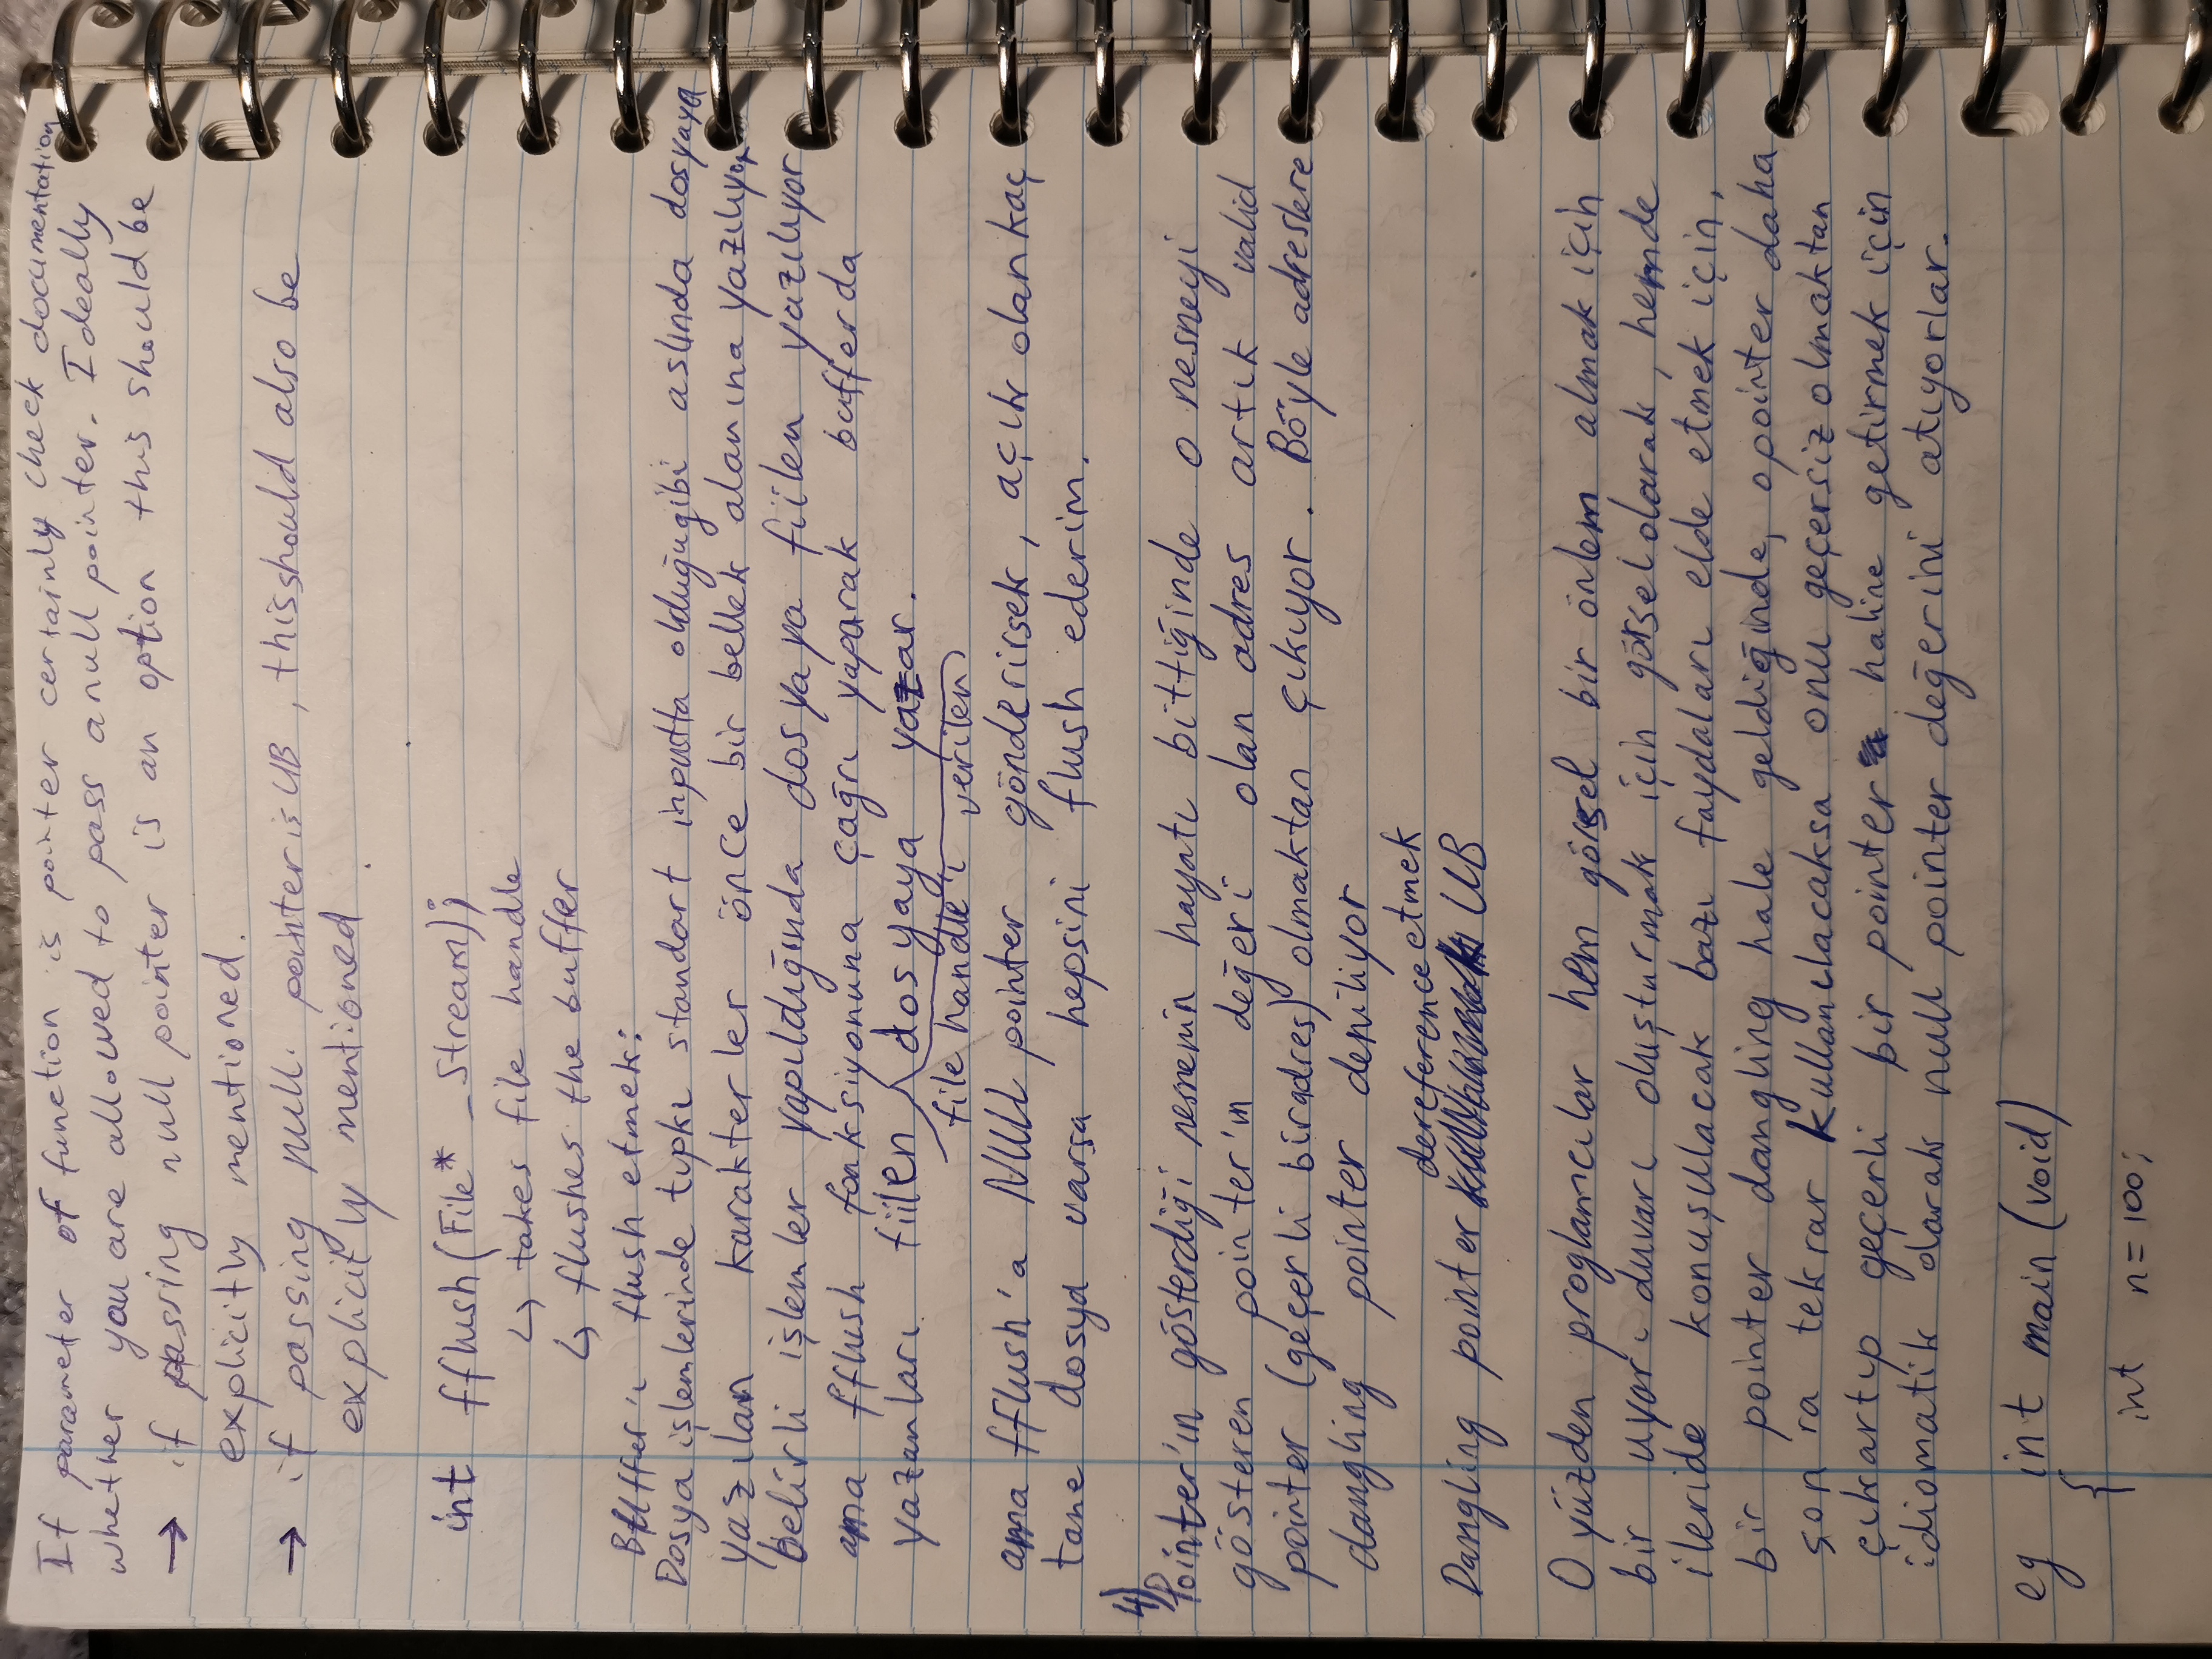 If parameter of function is pointer certainly check documentation
whether you are allowed to pass a null pointer. Ideally
→ if passing null pointer is an option this should be
explicitly mentioned.
→ if passing null pointer is UB, this should also be
explicitly mentioned.
int fflush(File* _Stream);
↳ takes file handle
↳ flushes the buffer
Buffer'ı flush etmek:
Dosya işlemlerinde tıpkı standart inputta olduğu gibi aslında dosyaya
yazılan karakterler önce bir bellek alanına yazılıyor
belirli işlemler yapıldığında dosyaya fiilen yazılıyor
ama fflush fonksiyonuna çağrı yaparak bufferda
yazanları fiilen dosyaya yazar.
file handle'ı verilen
ama fflush'a NULL pointer gönderirsek, açık olan kaç
tane dosya varsa hepsini flush ederim.
4)
Pointer'ın gösterdiği nesnenin hayatı bittiğinde o nesneyi
gösteren pointer'ın değeri olan adres artık valid
pointer (geçerli bir adres) olmaktan çıkıyor. Böyle adreslere
dangling pointer deniliyor
dereference etmek
Dangling pointer UB
O yüzden proglamcılar hem görsel bir önlem almak için
bir uyarı duvarı oluşturmak için görsel olarak, hemde
ileride konuşulacak bazı faydaları elde etmek için,
bir pointer dangling hale geldiğinde, o pointer daha
sonra tekrar kullanılacaksa onu geçersiz olmaktan
çıkartıp geçerli bir pointer haline getirmek için
idiomatik olarak null pointer değerini atıyorlar.
eg int main (void)
{
int n = 100;